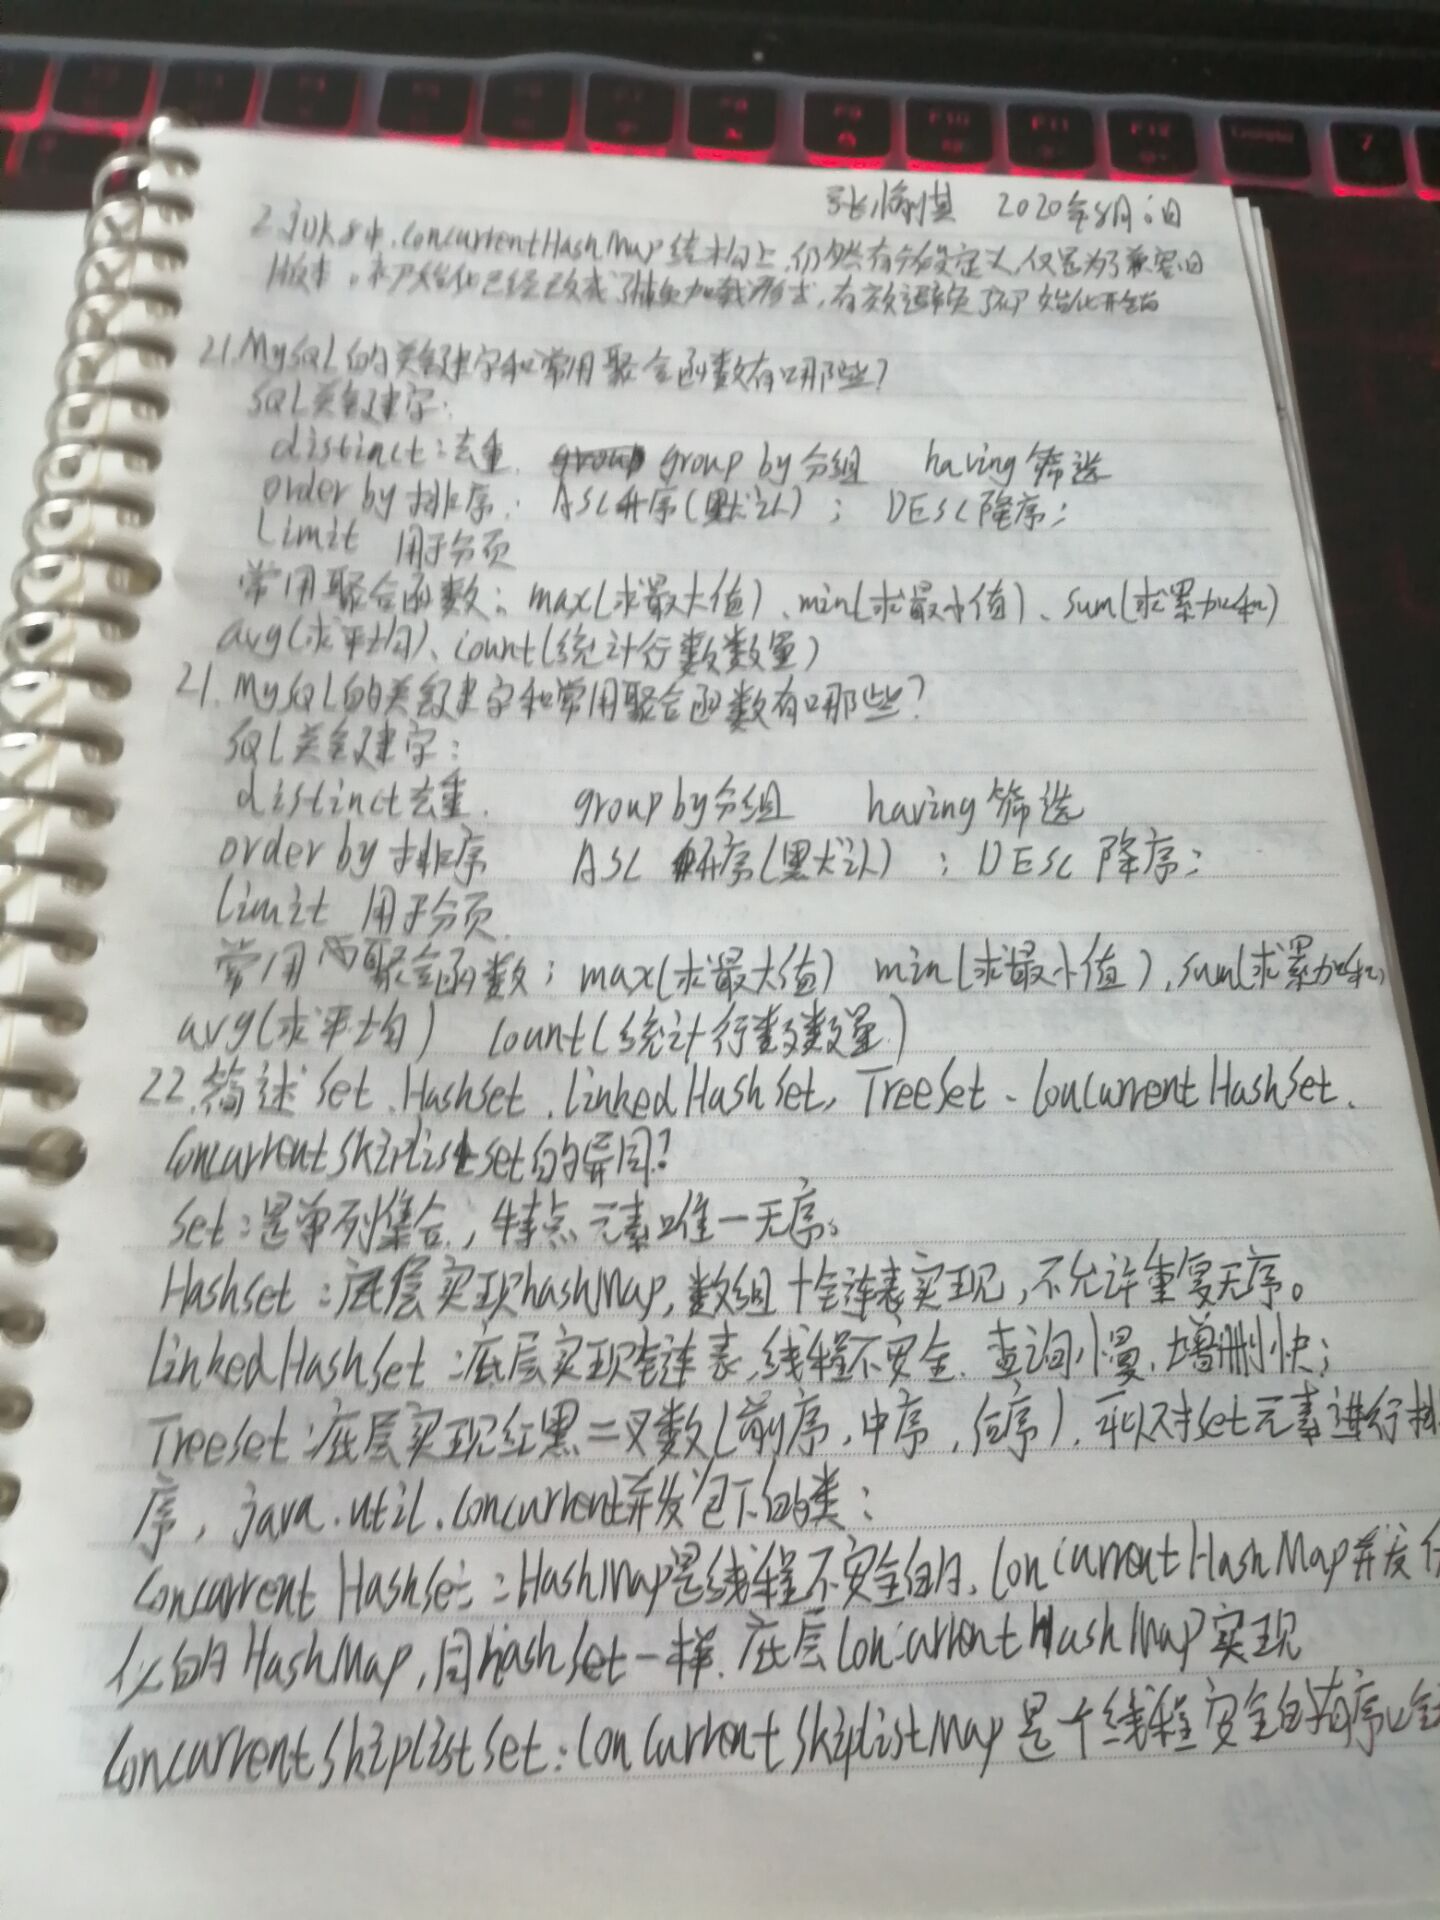 张 2020年8月 日
2.JDK8中,ConcurrentHashMap结构上,仍然有分段定义,仅是为了兼容旧
版本。初始化已经改成了懒加载形式,有效避免了初始化开销
21.MySQL的关键字和常用聚合函数有哪些?
SQL关键字:
distinct:去重. group by分组 having筛选
order by 排序. ASC升序(默认); DESC降序;
Limit 用于分页
常用聚合函数:max(求最大值)、min(求最小值)、sum(求累加和)
avg(求平均)、count(统计行数数量)
21.MySQL的关键字和常用聚合函数有哪些?
SQL关键字:
distinct去重. group by分组 having筛选
order by 排序 ASC 升序(默认) ; DESC 降序;
limit 用于分页.
常用 聚合函数:max(求最大值) min(求最小值),sum(求累加和)
avg(求平均) count(统计行数数量)
22.简述Set、HashSet、LinkedHashSet、TreeSet、ConcurrentHashSet、
ConcurrentSkipListSet的异同?
Set:是单列集合,特点元素唯一无序。
HashSet:底层实现hashMap,数组+链表实现,不允许重复无序。
LinkedHashSet:底层实现链表,线程不安全.查询慢,增删快;
TreeSet:底层实现红黑二叉数(前序,中序,后序),可以对set元素进行排
序,java.util.concurrent并发包下的类:
Concurrent HashSet:HashMap是线程不安全的,ConcurrentHashMap并发
化的HashMap,同HashSet一样.底层ConcurrentHashMap实现
ConcurrentSkipListSet:ConcurrentSkipListMap是个线程安全的有序